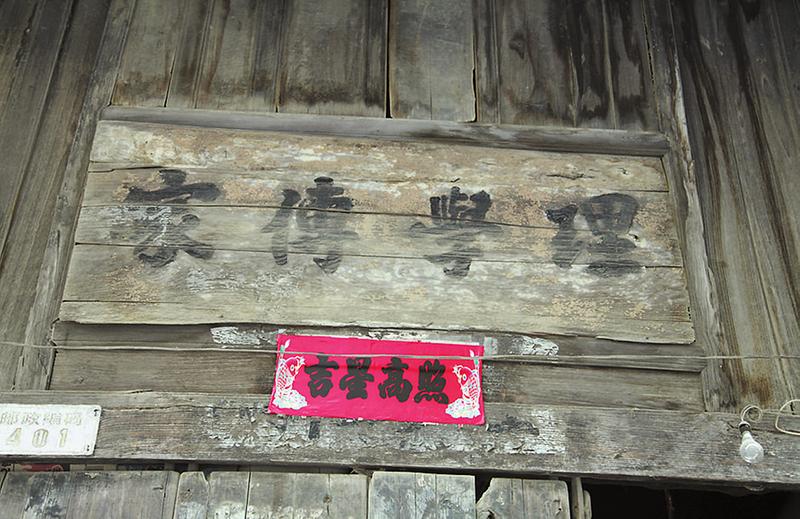 理學傳家
吉星高照
401